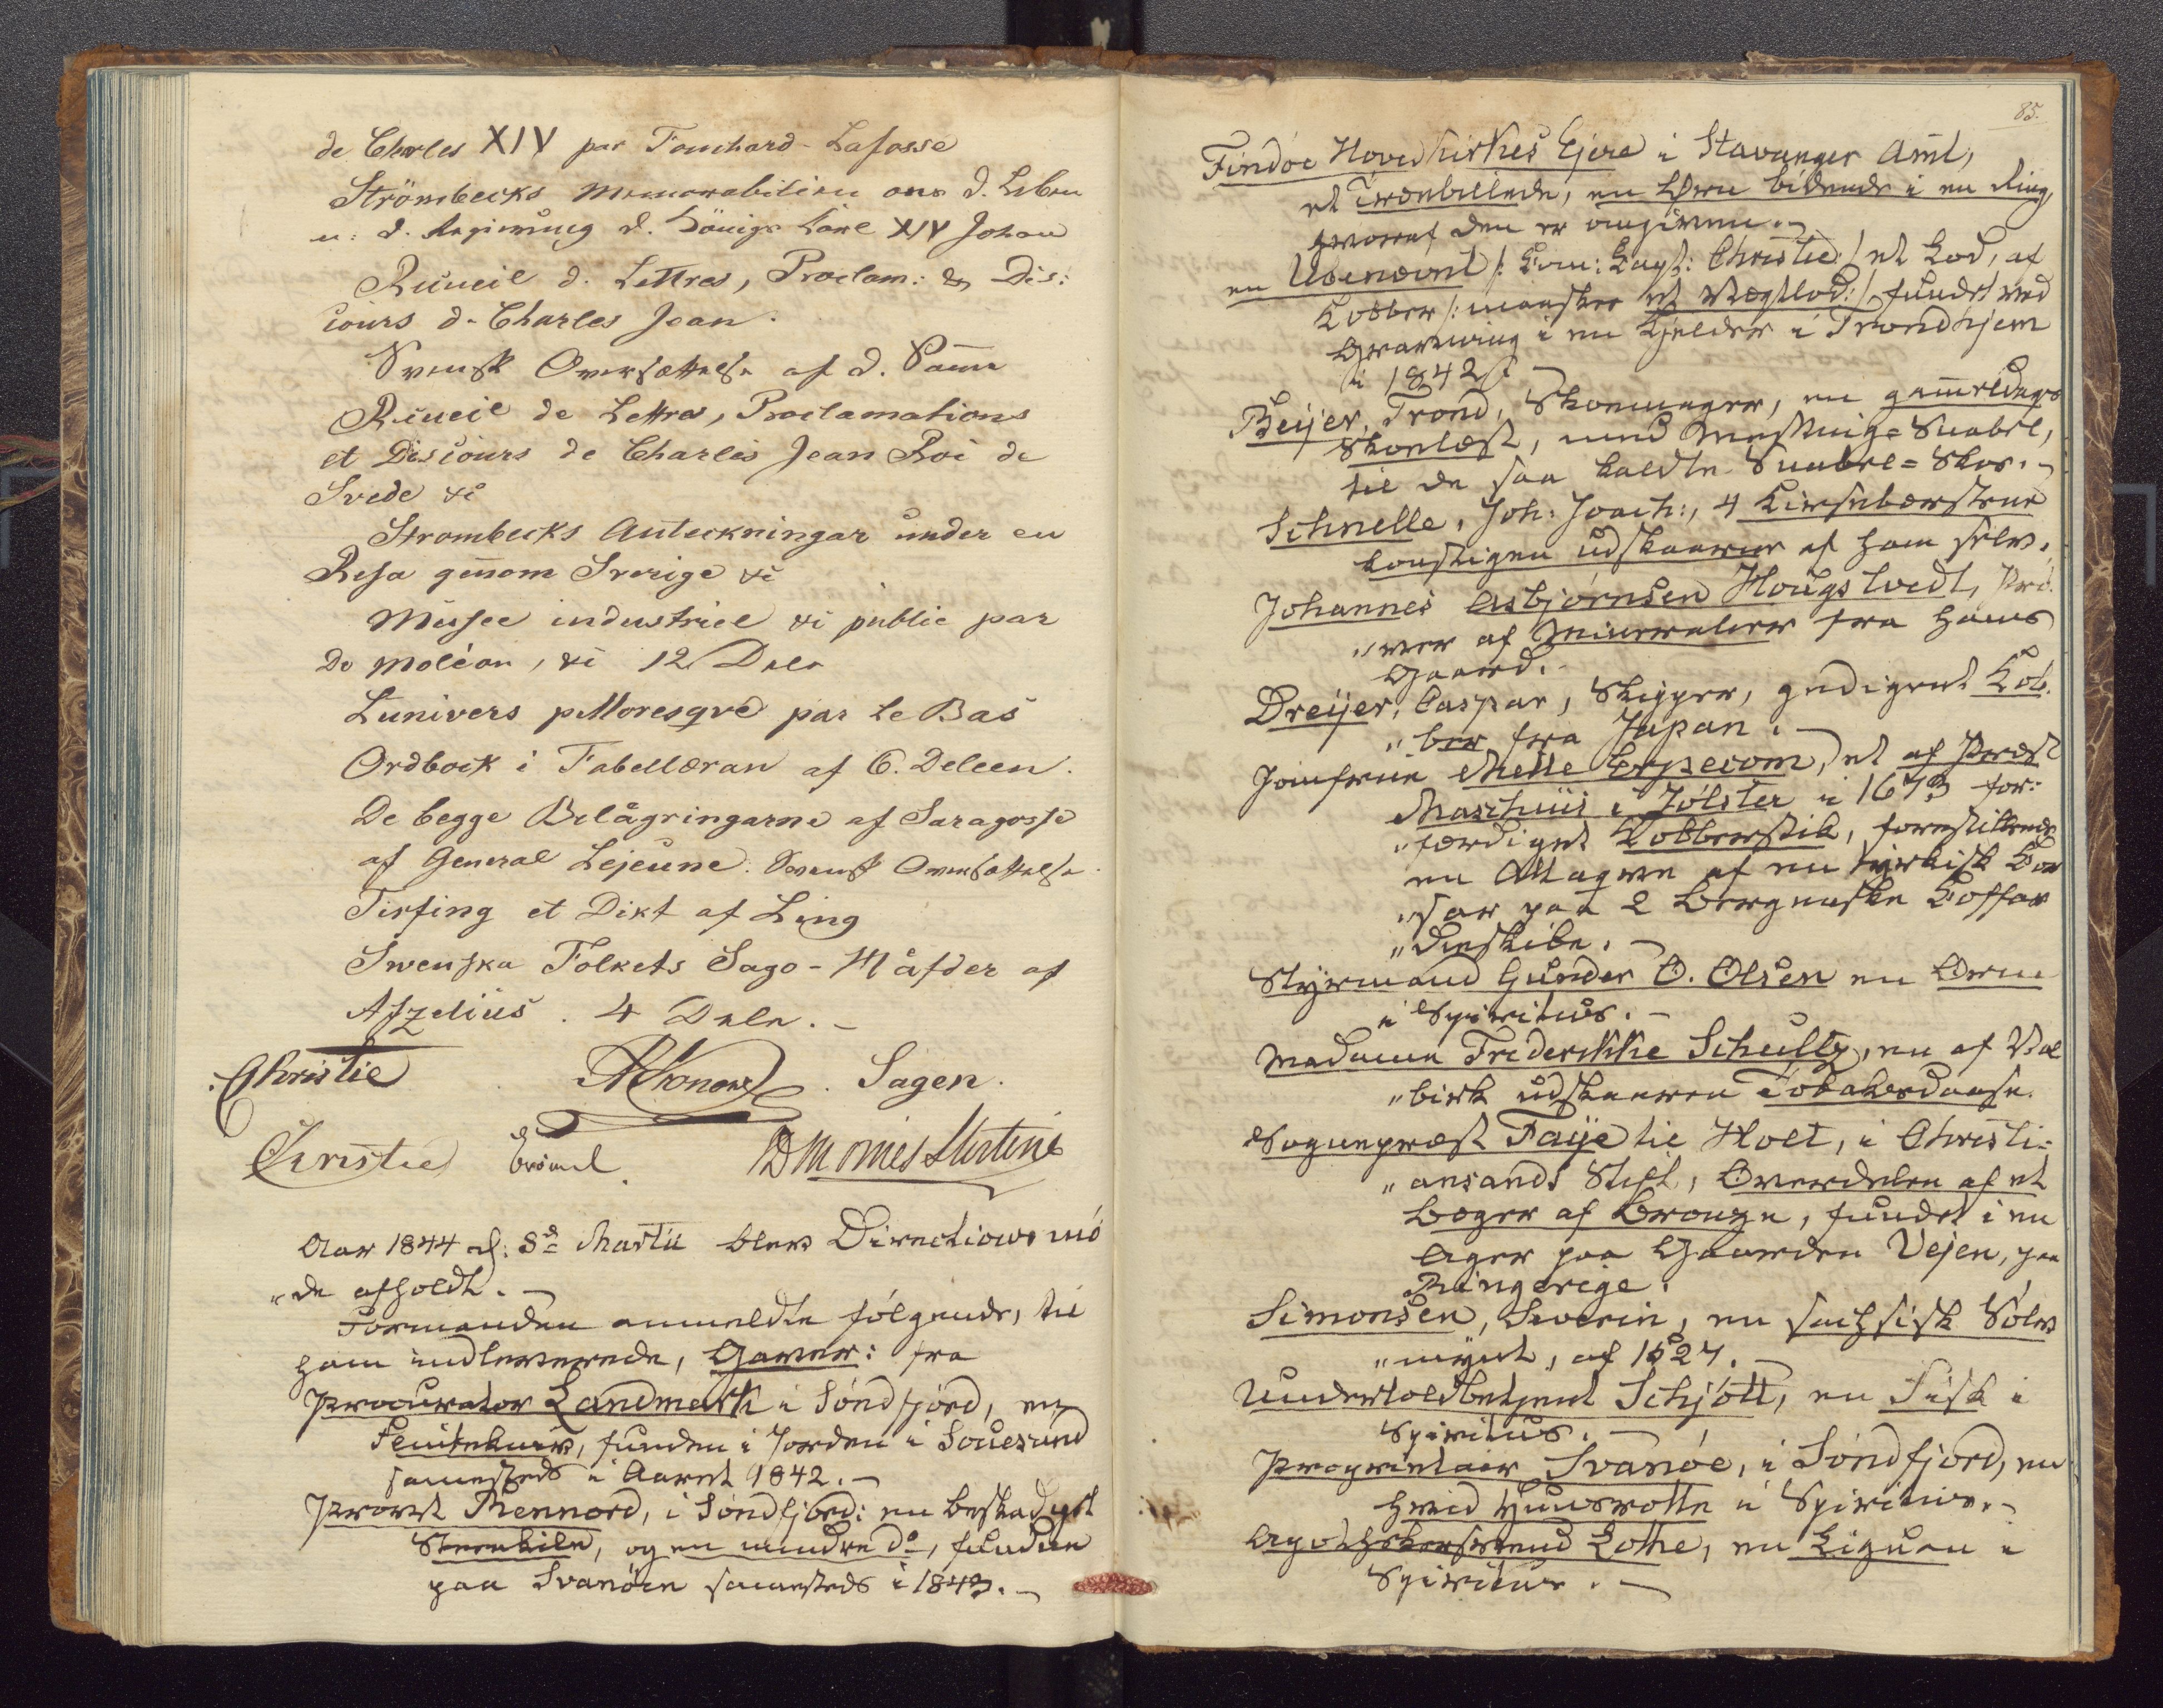 de Charles XIV par Touchard-Lafosse
Strömbecks Memorabilien aus d. Leben
u: d. Regierung d. Königs Karl XIV Johan
Recueil d. Lettres, Proclam: & Dis:
cours d. Charles Jean.
Svensk Oversættelse af d. Samme
Recueil de Lettres, Proclamations
et Discours de Charles Jean Roi de
Svede &c
Strombecks Anteckningar under en
Resa genom Sverige &c
Musee industriel &c public par
De Moléon, &c 12 Dele
Lunivers pittoresqve par Le Bas
Ordbock i Fabelläran af C. Deleen.
De begge Belägringarne af Saragosse
af General Lejeune. Svensk Oversættelse.
Tirfing et Dikt af Ling
Swenska Folkets Sago-Häfder af
Afzelius. 4 Dele. -
Christie Konow. Sagen.
Christie
Aar 1844 d: 8de Martii blev Directionsmö
"de afholdt. -
Formanden anmeldte følgende, til
ham indleverede, Gaver: fra
Procurator Landmark i Söndfjord, en
funden i Jorden i
sammesteds i Aaret 1842. -
Provst Rennord, i Söndfjord: en beskadiget
Steenkile, og en mindre do, fundne
paa Svanöen sammesteds i 1843. -
85.
Findöe Hovedkirkes Ejere i Stavanger Amt,
et Træebillede, en Ørn bidende i en Ring,
hvoraf den er omgiven. -
en Ubenævnt /: Com: Capt: Christie :/ et Lod, af
Kobber /: maaskee et Vægtlod :/ fundet ved
Gravning i en Kjelder i Trondhjem
i 1842. -
Beijer, Trond, Skoemager, en gammeldags
Skoelæst, med Messing-Snabel,
til de saa kaldte Snabel-Skoe. -
Schnelle, Joh: Joach:, 4 Kirsebærstene
konstigen udskaarne af ham selv.
Johannes Asbjørnsen Hougstvedt, Prö
"ver af Mineralier fra hans
Gaard. -
Dreijer, Caspar, Skipper, gedigent Kob
"ber fra Japan. -
Jomfrue Mette Erpecom, et af Præst
Maschius i Jölster i 1673 for:
"færdiget Kobberstik, forestillende
en Attaqve af en tyrkisk Cor
"sar paa 2 Bergenske Coffar
"dieskibe. -
Styrmand Gunder O. Olsen en Orm
i Spiritus. -
Madame Frederikke Schultz, en af Val
"birk udskaaren Tobaksdaase.
Sognepræst Faije til Holt, i Christi-
"ansands Stift, Overdelen af et
Bæger af Bronze, fundet i en
Ager paa Gaarden Vejen, paa
Ringerige.
Simonsen, Severin, en sachsisk Sölv
"mynt, af 1627. -
Undertoldbetjent Schjött, en Fisk i
Spiritus. -
Proprietair Svanöe, i Söndfjord, en
hvid Huusrotte i Spiritus. -
Apothekersvend Lothe, en Liguan i
Spiritus. -